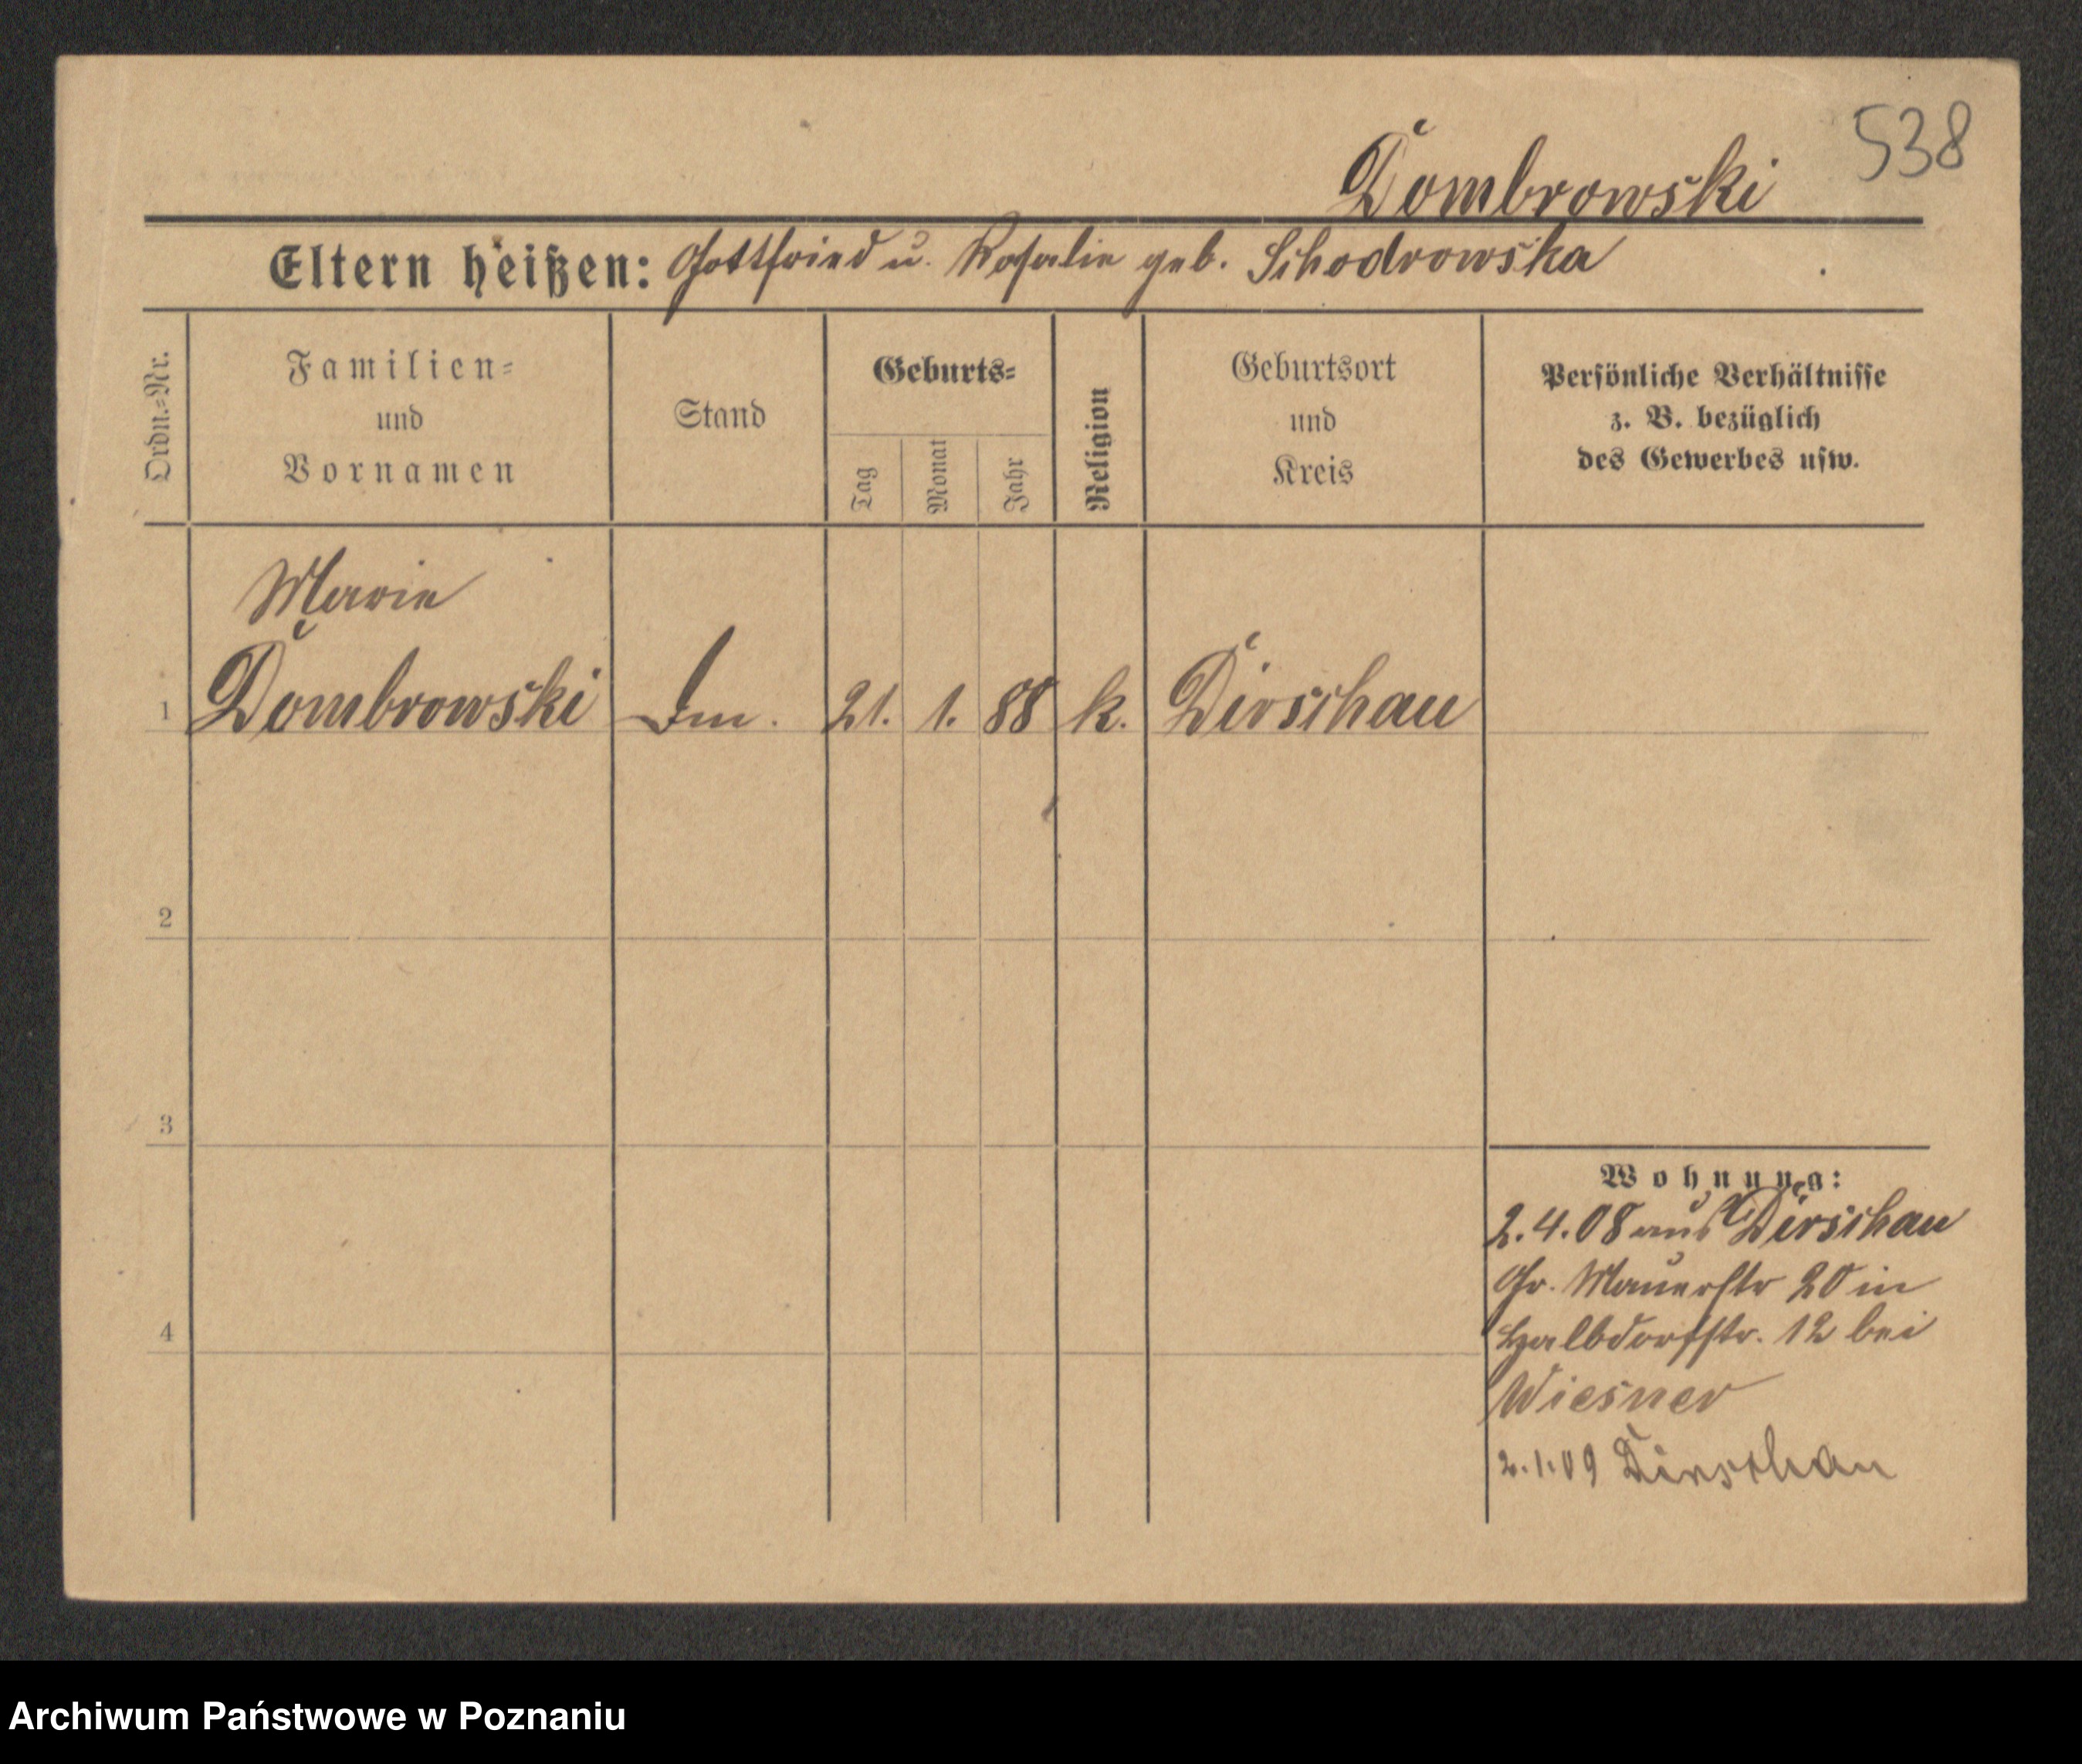 538
Dombrowski
Eltern heißen: Gottfried u. Rosalie geb. Schodrowska
Ordn.=Nr.
Familien=
und
Vornamen
Stand
Geburts=
Tag
Monat
Jahr
Religion
Geburtsort
und
Kreis
Persönliche Verhältnisse
z. B. bezüglich
des Gewerbes usw.
Marie
1 Dombrowski 21. 1. 88 k. Dirschau
2
3
4
Wohnung:
2.4.08 aus Dirschau
Gr. Mauerstr 20 in
Halbdorfstr. 12 bei
Wiesner
2.1.09 Dirschau
Archiwum Państwowe w Poznaniu